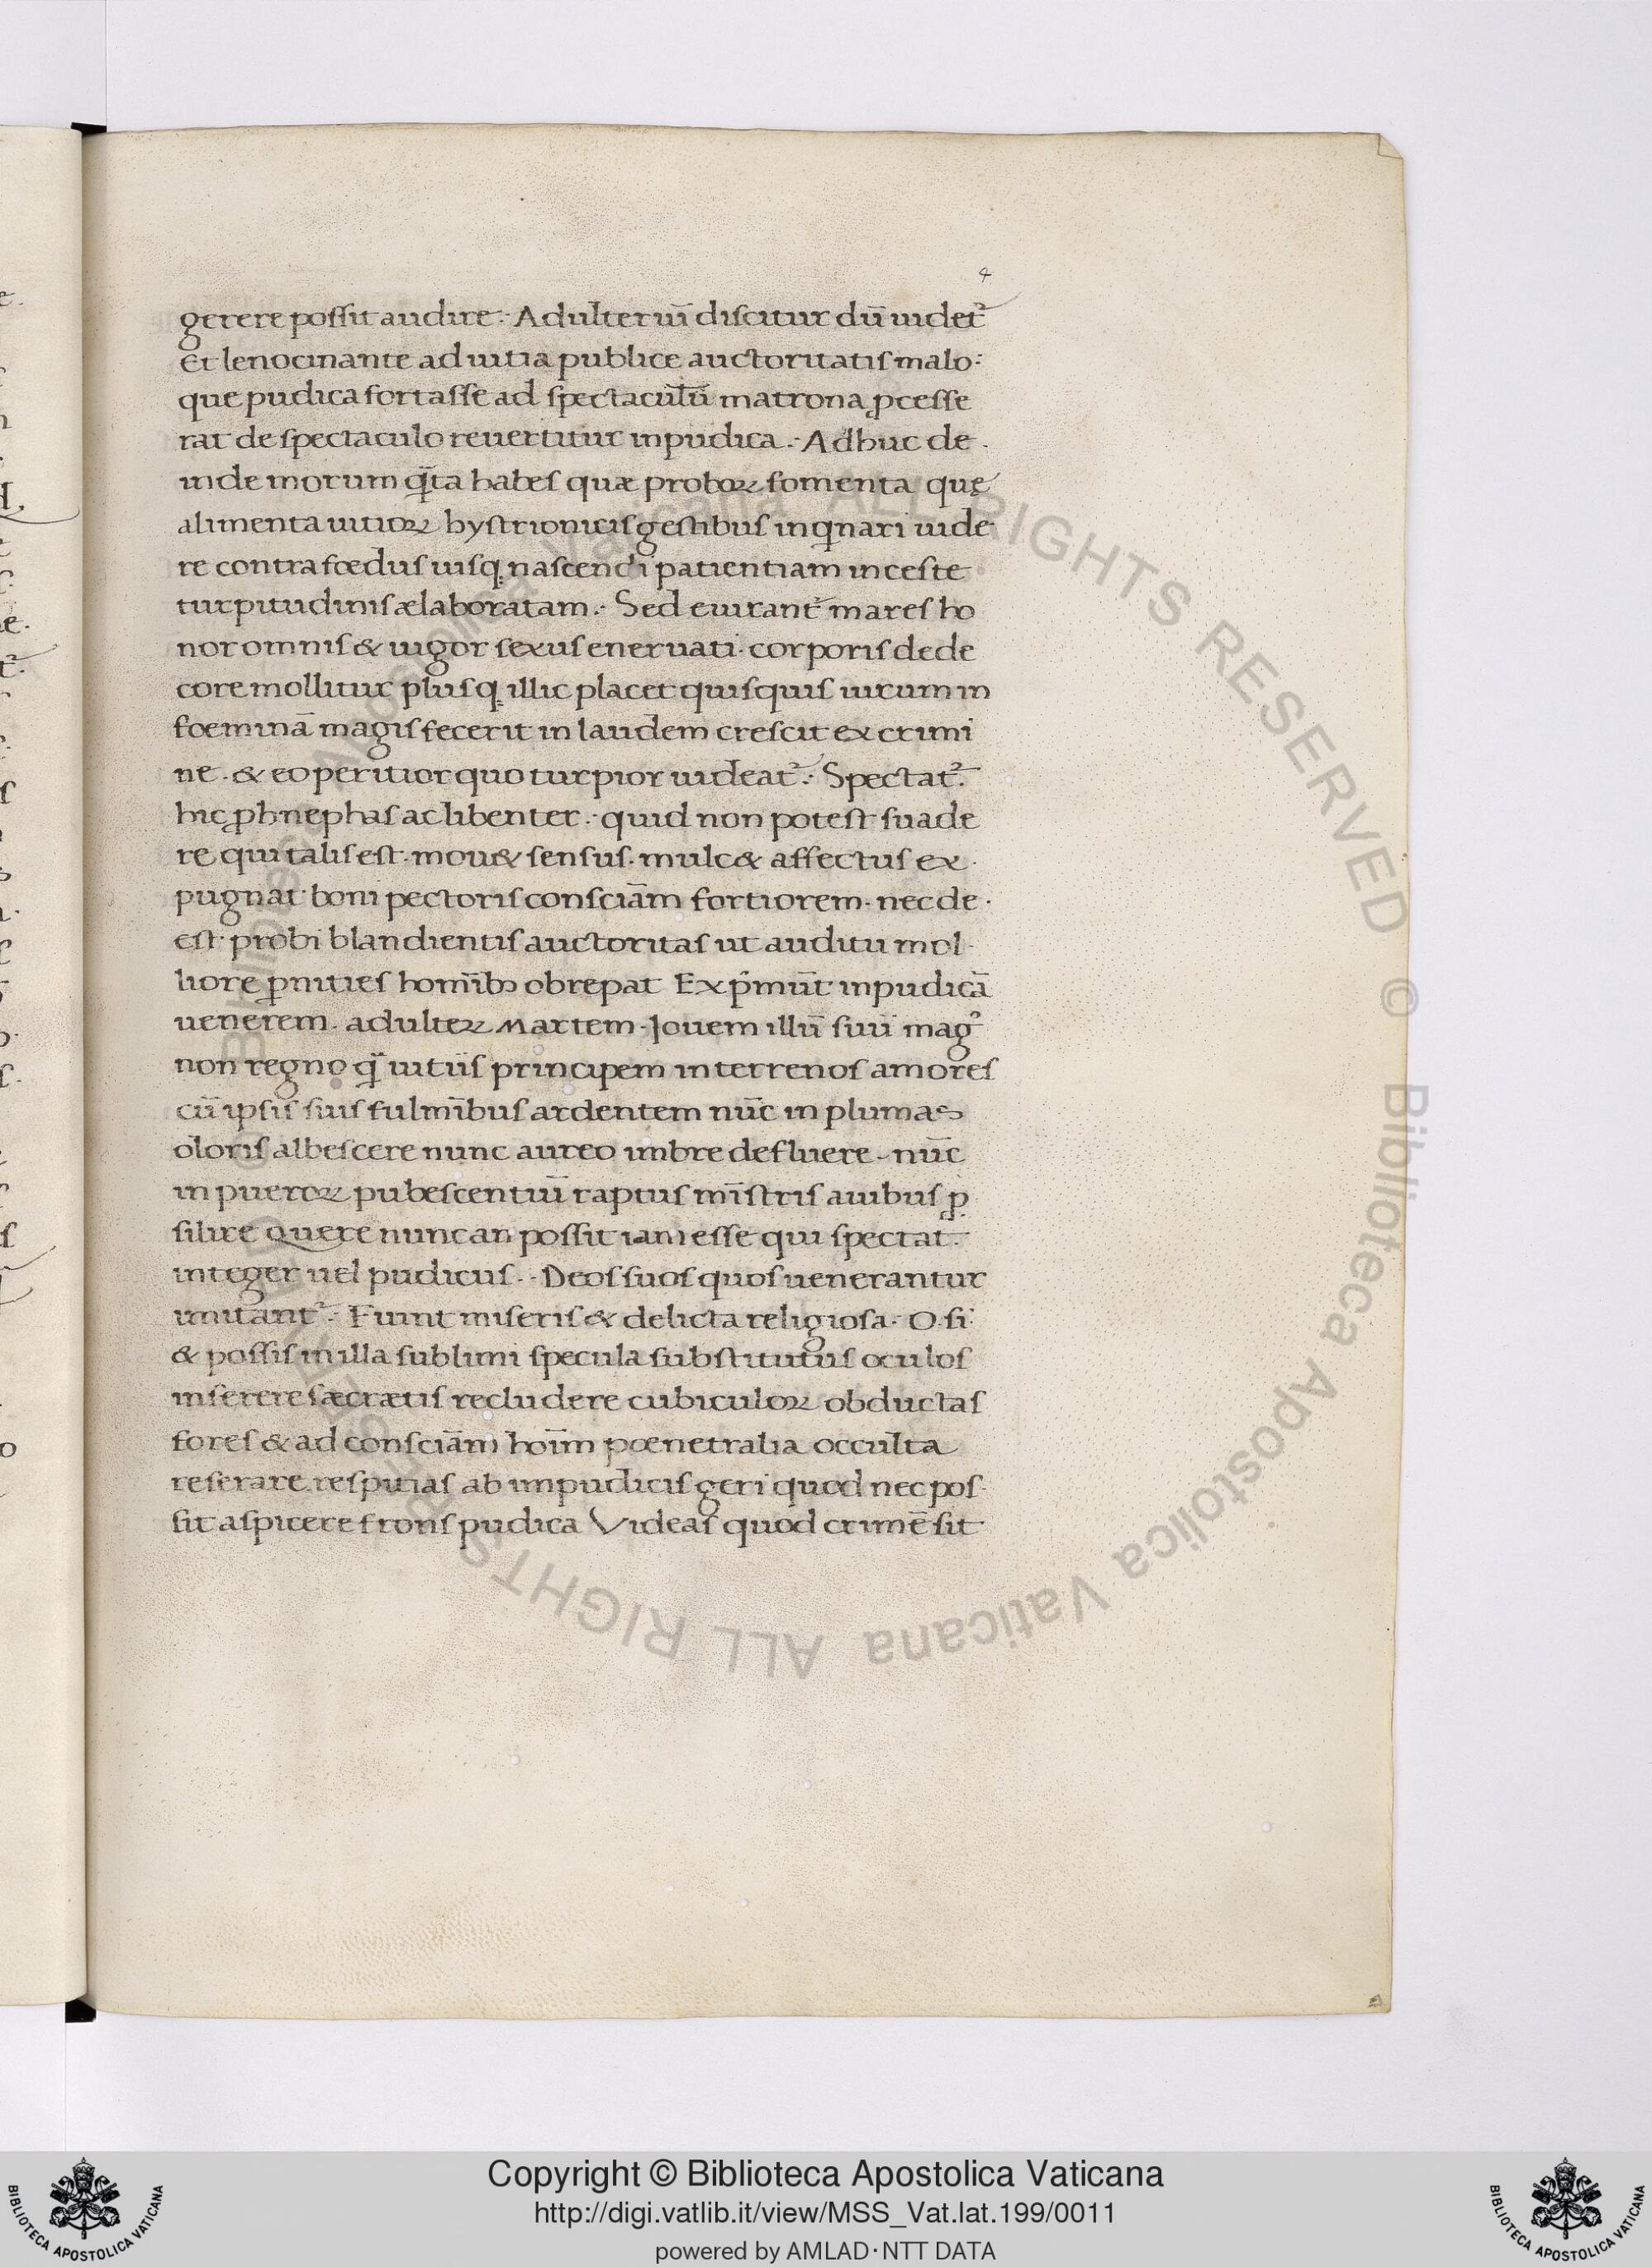 4
gerere possit audire. Adulteriũ discitur dũ uidet᷑
Et lenocinante ad uitia publice auctoritatis malo:
que pudica fortasse ad spectaculũ matrona ꝓcesse
rat de spectaculo reuertitur inpudica. Adhuc de
inde morum q̃ta labes quæ proboꝝ fomenta quę
alimenta uitioꝝ hystrionicis gestibus inq̇nari uide
re contra fœdus iusq; nascendi patientiam inceste
turpitudinis ælaboratam. Sed euirant᷑ mares ho
nor omnis & uigor sexus eneruati corporis dede
core mollitur plusq; illic placet quisquis uirum in
foeminã magis fecerit in laudem crescit ex crimi
ne. & eo peritior quo turpior uideat᷑. Spectat᷑
hic ꝓh nephas ac libenter. quid non potest suade
re qui talis est. mou& sensus. mulc& affectus ex
pugnat boni pectoris consciãm fortiorem. nec de
est probi blandientis auctoritas ut auditu mol
liore ꝑnities homĩbꝫ obrepat Exp̃mũt inpudicã
uenerem. adulteꝝ Martem. Iouem illũ suũ mag᷒
non regno q̃ uitiis principem in terrenos amores
cũ ipsis suis fulmĩbus ardentem nũc in plumas
oloris albescere nunc aureo imbre defluere. nũc
in pueroꝝ pubescentiũ raptus mĩstris auibus ꝓ
silire Quere nunc an possit iam esse qui spectat
integer uel pudicus. Deos suos quos uenerantur
imitant᷑. Fiunt miseris & delicta religiosa. O si
& possis in illa sublimi specula substitutus oculos
inserere sæcrætis recludere cubiculoꝝ obductas
fores & ad consciãm hoĩm pœnetralia occulta
reserare respicias ab impudicis geri quod nec pos
sit aspicere frons pudica Videas quod crimẽ sit
ALL RIGHTS RESERVED © Biblioteca Apostolica Vaticana
Copyright © Biblioteca Apostolica Vaticana
http://digi.vatlib.it/view/MSS_Vat.lat.199/0011
powered by AMLAD·NTT DATA
BIBLIOTECA APOSTOLICA VATICANA
BIBLIOTECA APOSTOLICA VATICANA